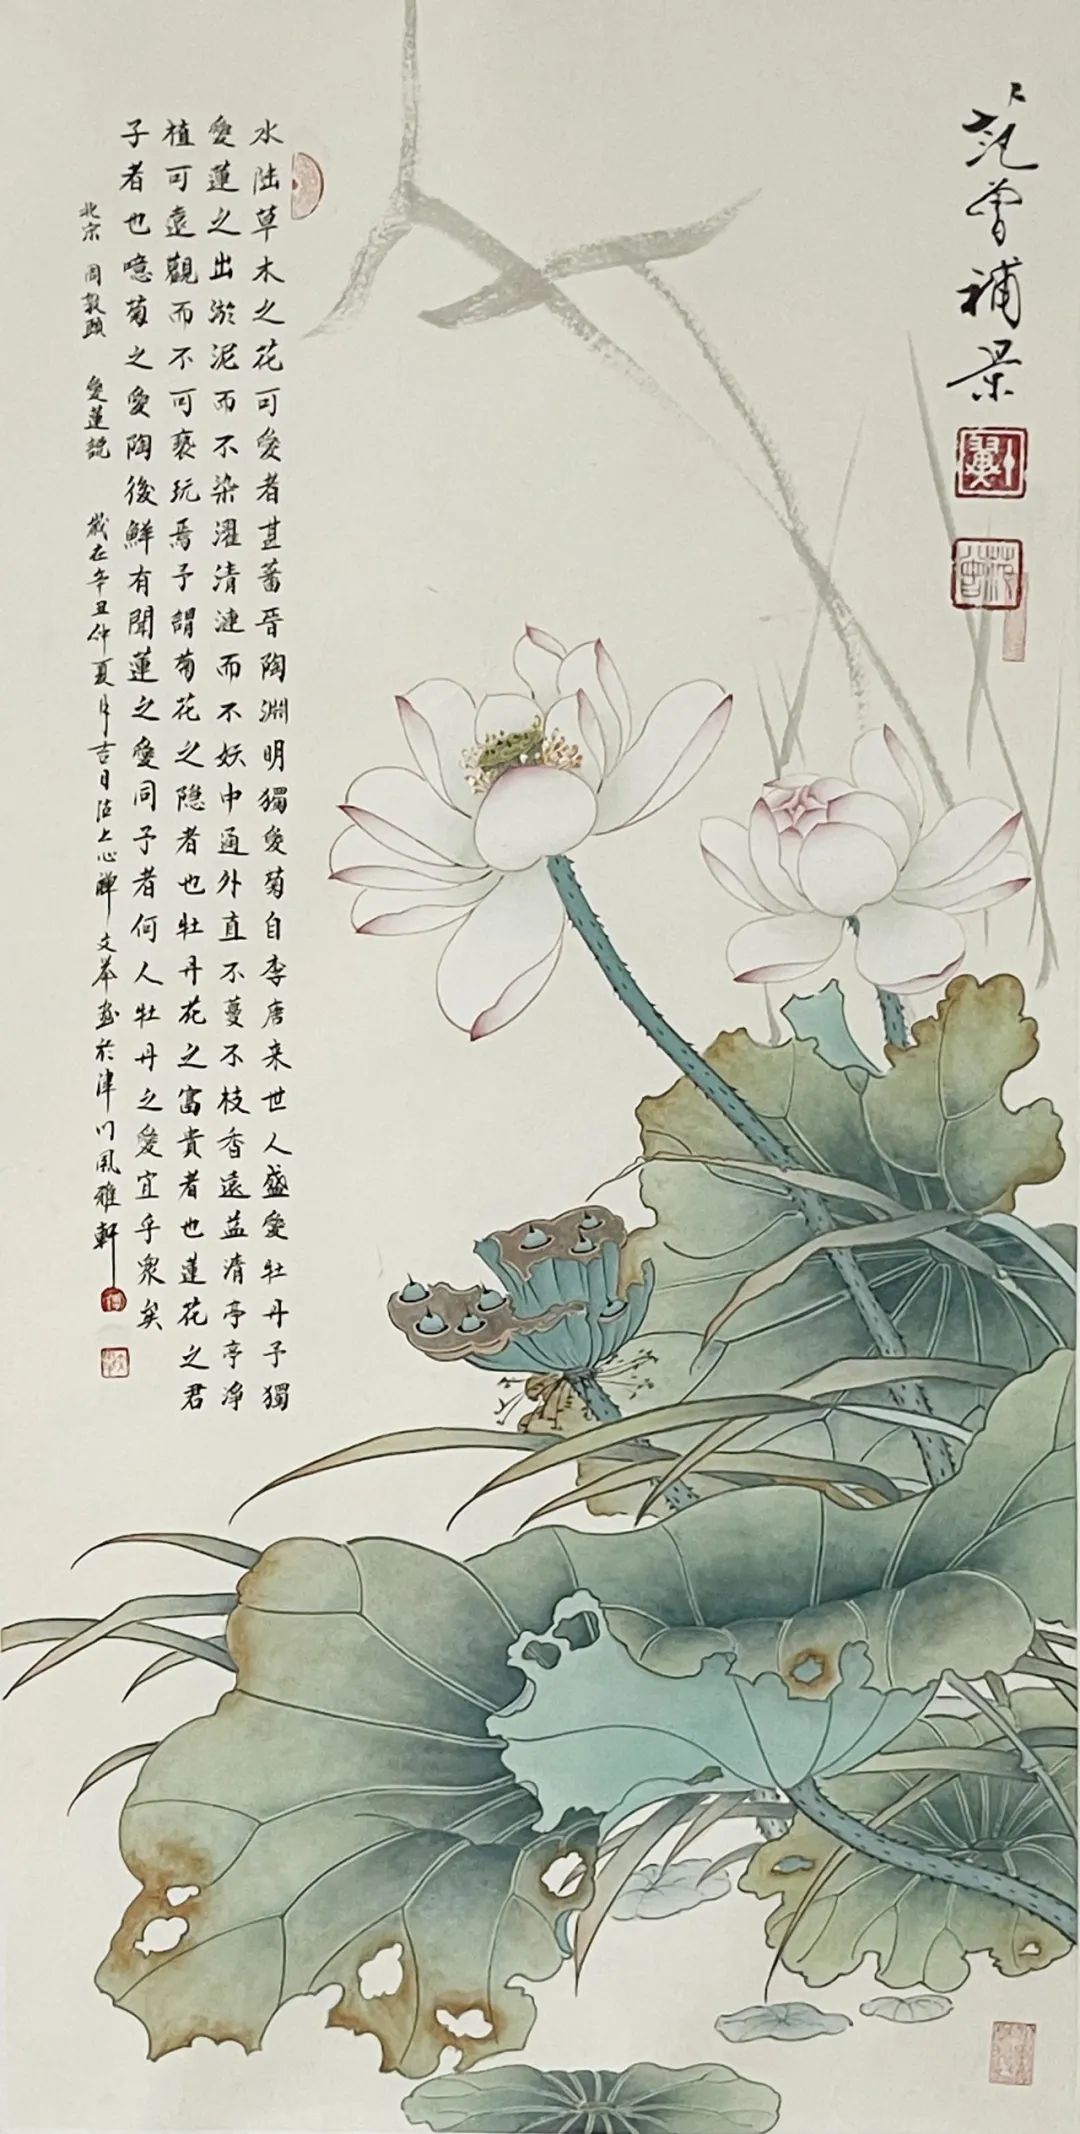 范曾補景
水陆草木之花可愛者甚蕃晉陶淵明獨愛菊自李唐来世人盛愛牡丹予獨
愛蓮之出淤泥而不染濯清漣而不妖中通外直不蔓不枝香遠益清亭亭净
植可遠觀而不可亵玩焉予謂菊花之隐者也牡丹花之富貴者也蓮花之君
子者也噫菊之愛陶後鮮有聞蓮之愛同予者何人牡丹之愛宜乎衆矣
北宋 周敦頤 愛蓮說 歲在辛丑仲夏月吉日沽上心禪文举画於津門風雅軒